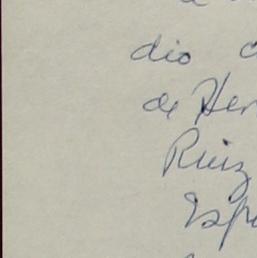 dio
de Her
Ruiz
Espe